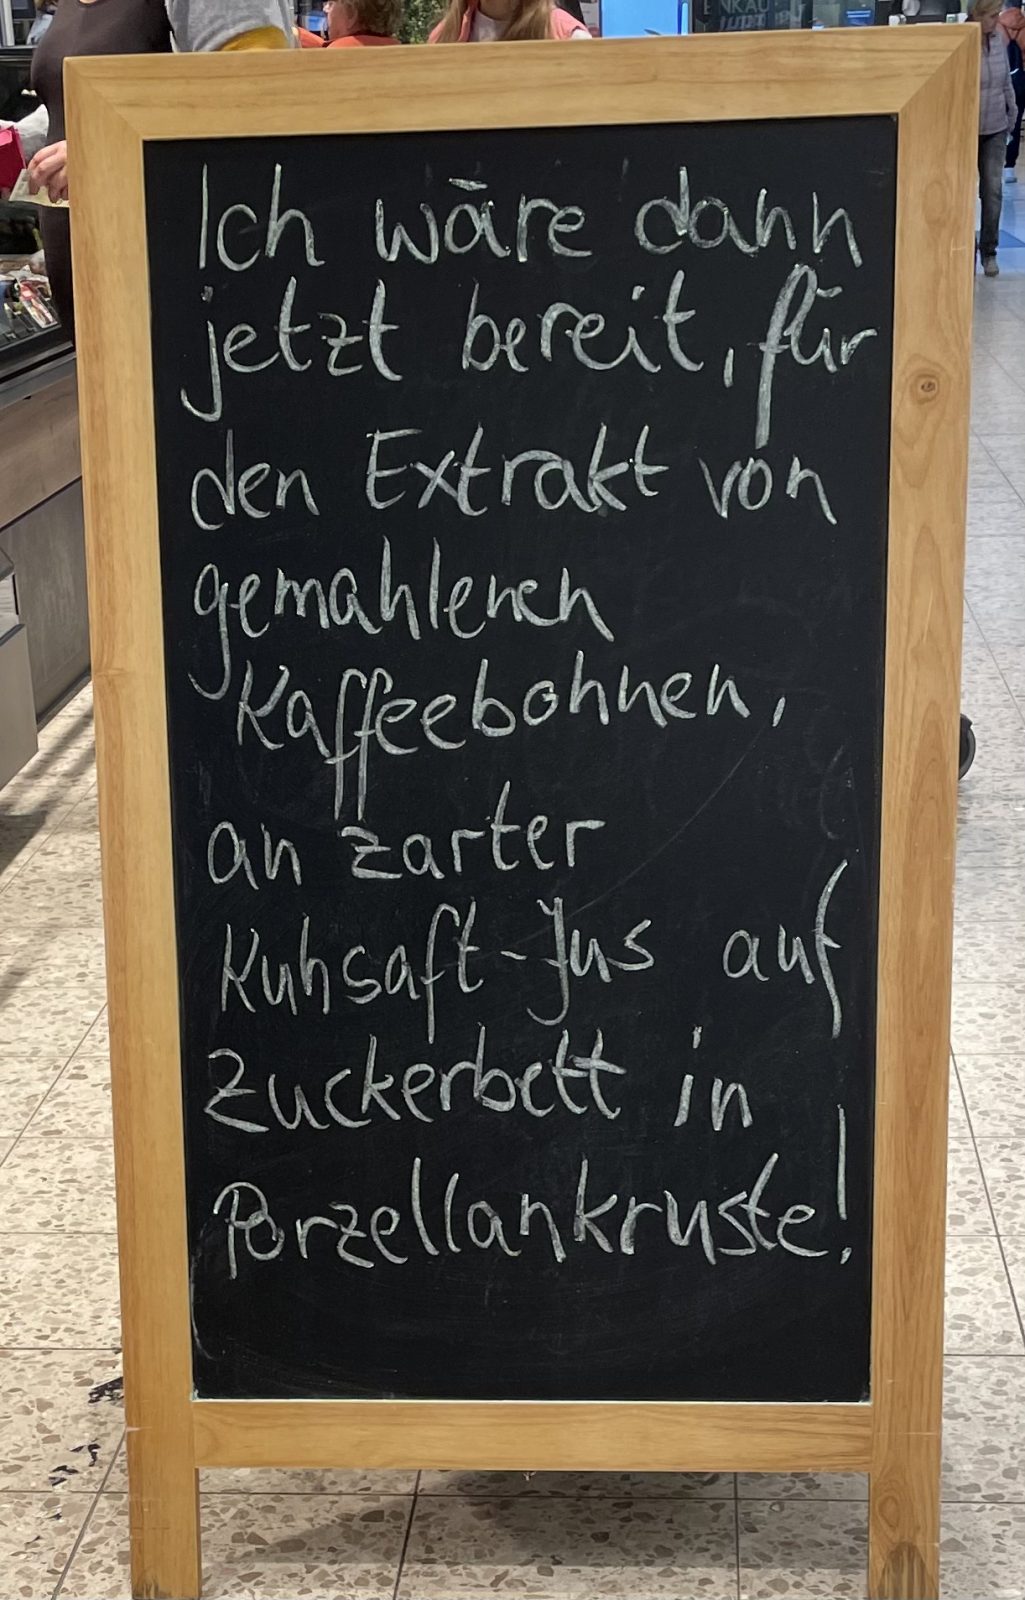 Ich wäre dann
jetzt bereit, für
den Extrakt von
gemahlenen
Kaffeebohnen,
an zarter
Kuhsaft-Jus auf
Zuckerbett in
Porzellankruste!